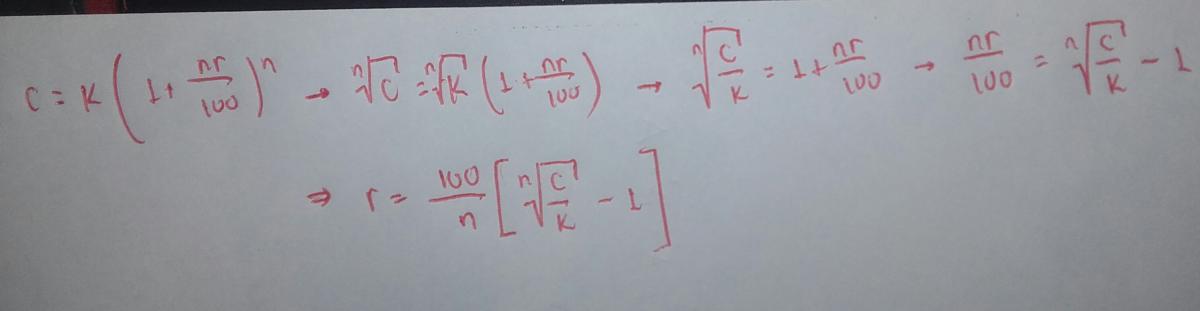 c = k (1 + nr/100)^n → ⁿ√c = ⁿ√k (1 + nr/100) → ⁿ√(c/k) = 1 + nr/100 → nr/100 = ⁿ√(c/k) - 1
⇒ r = 100/n [ⁿ√(c/k) - 1]